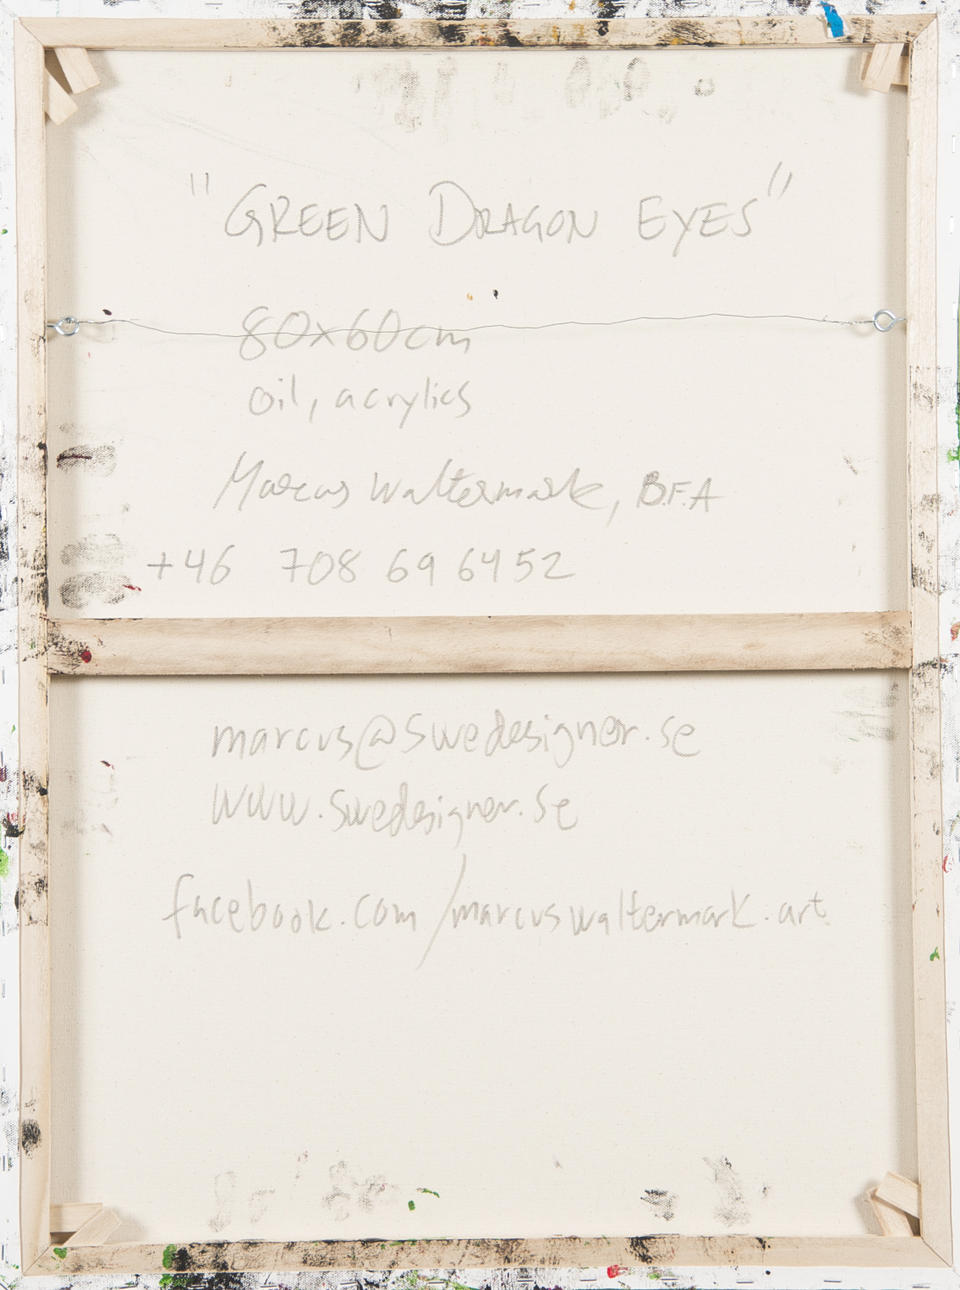 "GREEN DRAGON EYES"
80x60cm
oil, acrylics
Marcus Waltermark, B.F.A
+46 708 69 64 52
marcus@swedesigner.se
www.swedesigner.se
facebook.com/marcuswaltermark.art